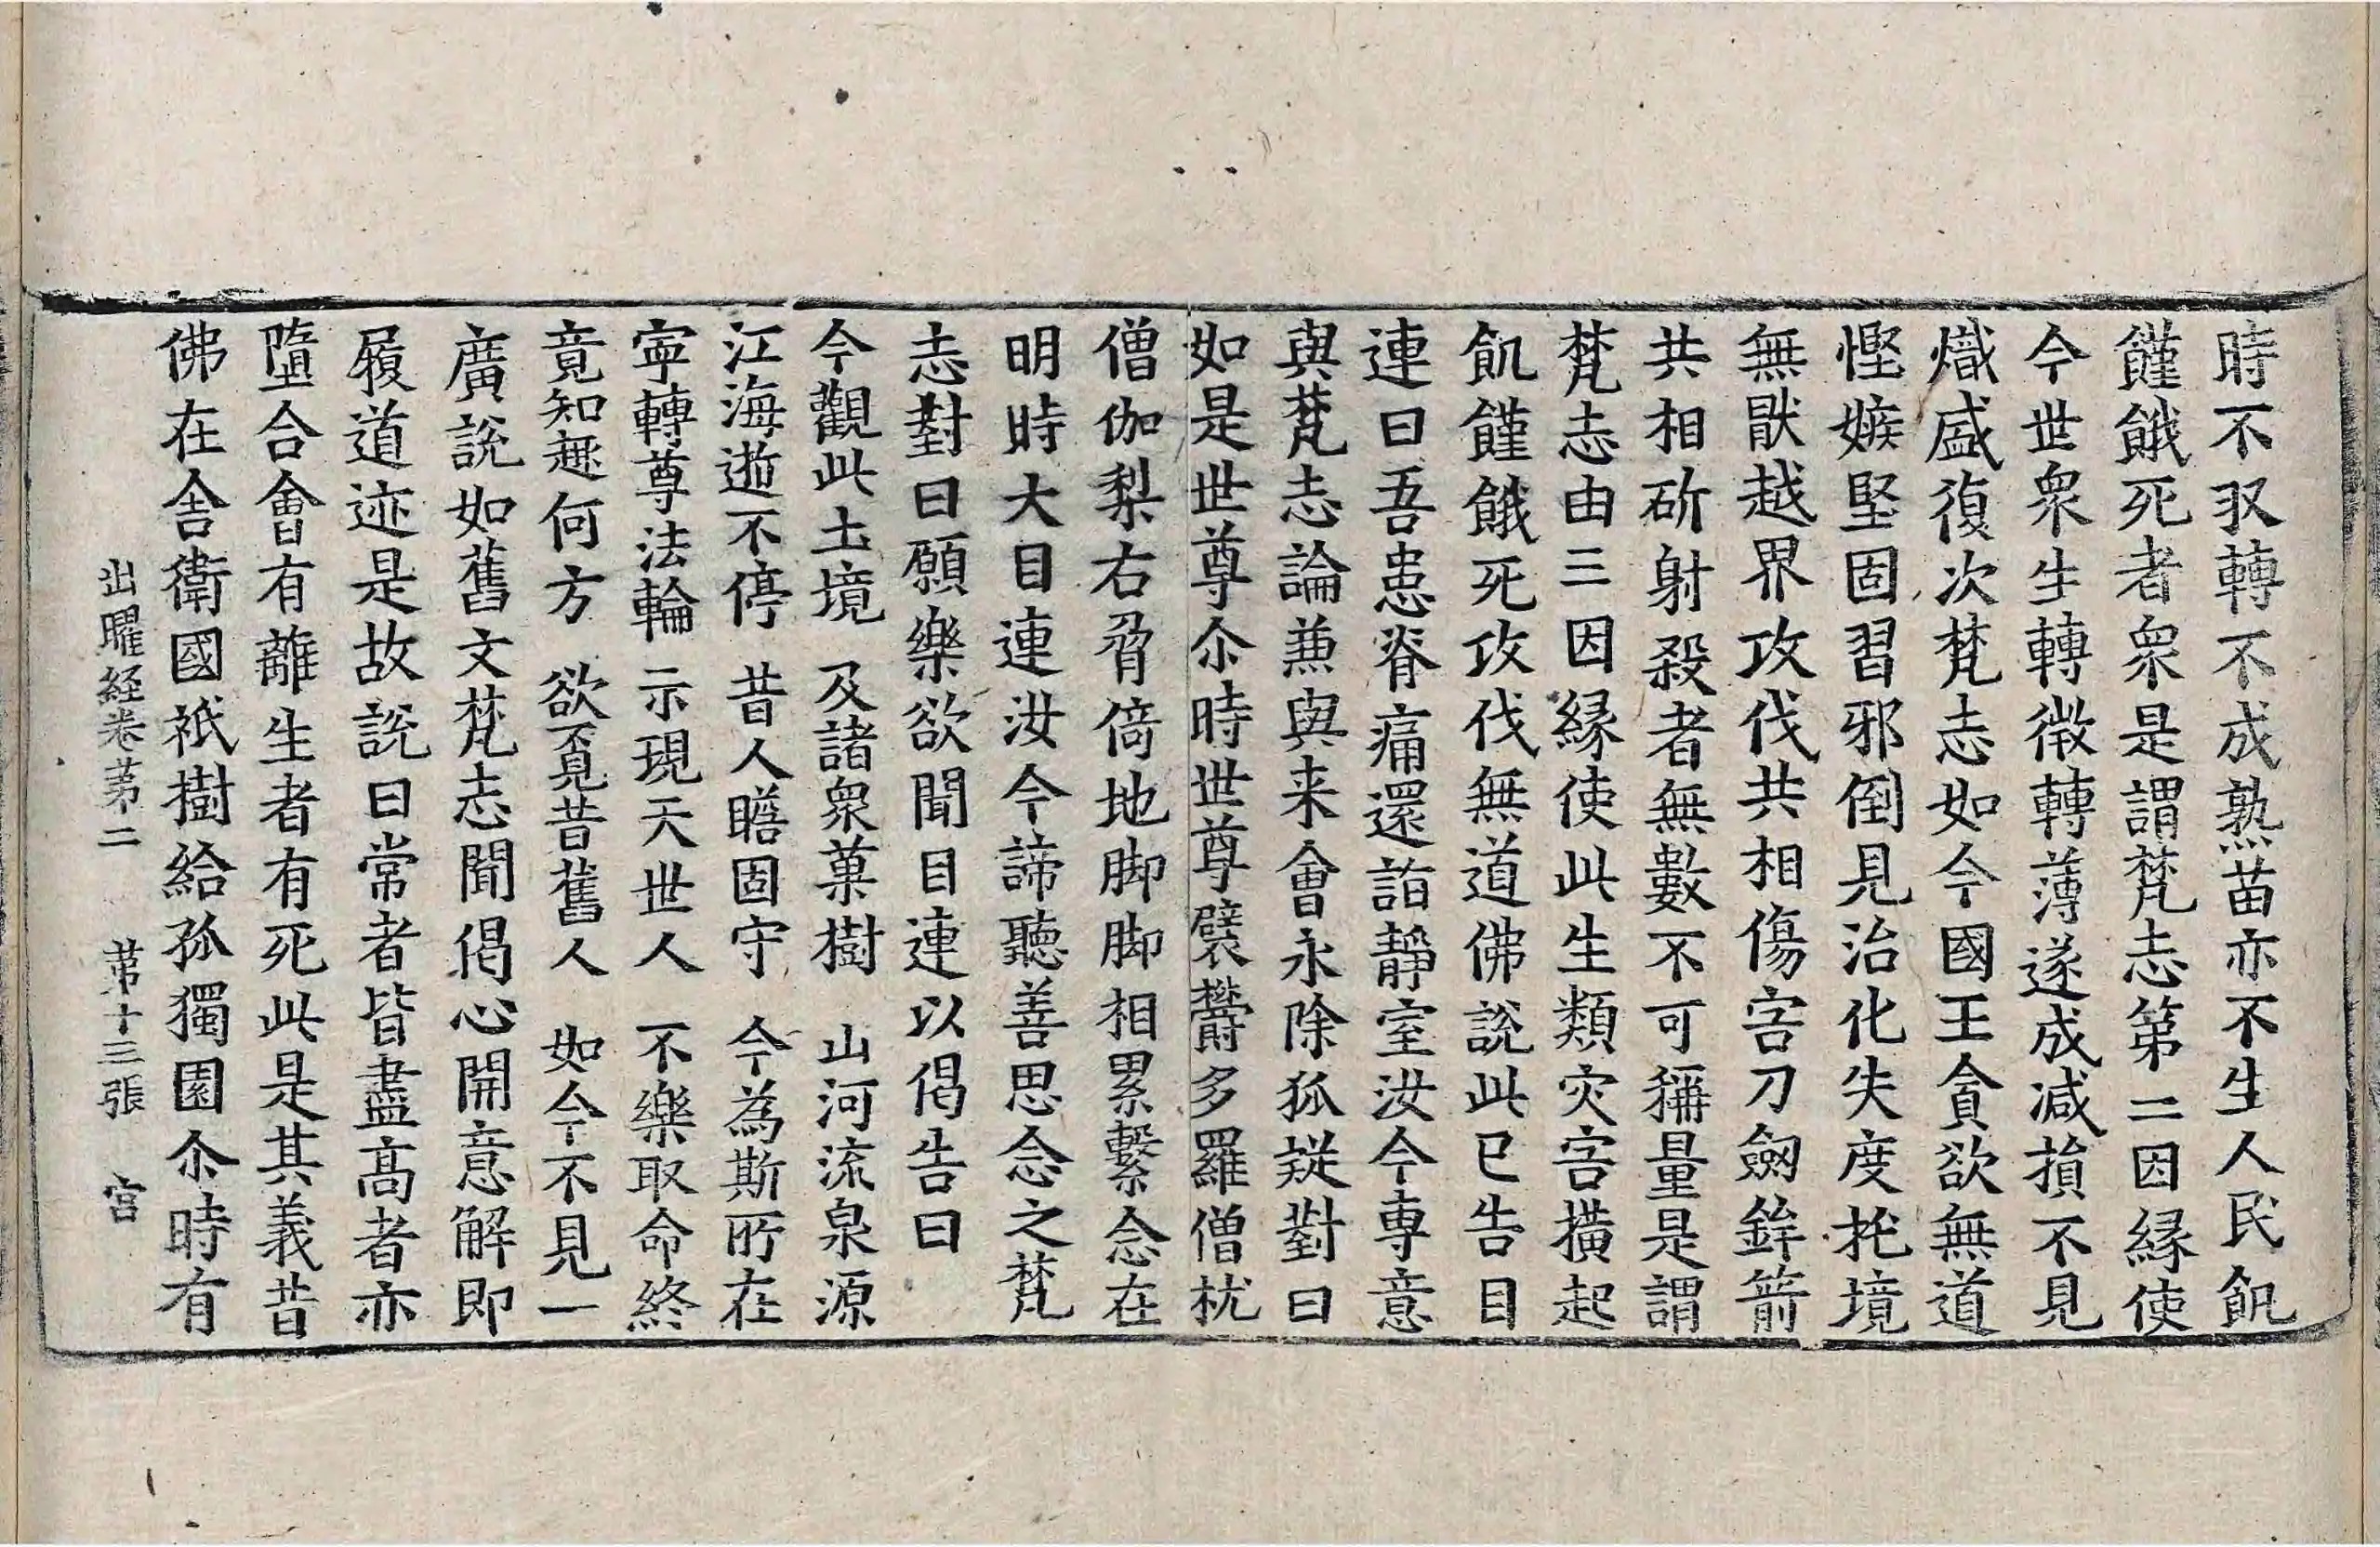 時不収轉不成熟苗亦不生人民飢
饉餓死者衆是謂梵志第二因縁使
今世衆生轉微轉薄遂成減損不見
熾盛復次梵志如今國王貪欲無道
慳嫉堅固習邪倒見治化失度抂境
無猒越界攻伐共相傷害刀劒鉾箭
共相斫射殺者無數不可稱量是謂
梵志由三因縁使此生類灾害横起
飢饉餓死攻伐無道佛說此已告目
連曰吾患脊痛還詣靜室汝今專意
與梵志論兼與来會永除狐疑對曰
如是世尊尒時世尊襞欝多羅僧枕
僧伽梨右脅倚地脚脚相累繫念在
明時大目連汝今諦聽善思念之梵
志對曰願樂欲聞目連以偈告曰
今觀此土境　及諸衆菓樹　山河流泉源
江海逝不停　昔人瞪固守　今為斯所在
寜轉尊法輪　示現天世人　不樂取命終
竟知趣何方　欲覓昔舊人　如今不見一
廣說如舊文梵志聞偈心開意解即
履道迹是故說曰常者皆盡髙者亦
墮合會有離生者有死此是其義昔
佛在舎衛國祇樹給孤獨園尒時有
出曜経卷苐二　苐十三張　宫